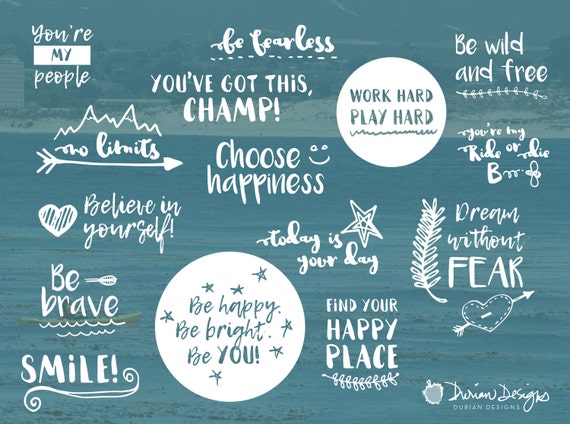 You're
MY
people
be fearless
Be wild
and free
YOU'VE GOT THIS,
CHAMP!
WORK HARD
PLAY HARD
no limits
Choose
happiness
you're my
Ride or die
B
Believe in
yourself!
today is
your day
Dream
without
FEAR
Be
brave
Be happy.
Be bright.
Be YOU!
FIND YOUR
HAPPY
PLACE
SMiLE!
Durian Designs
DURIAN DESIGNS